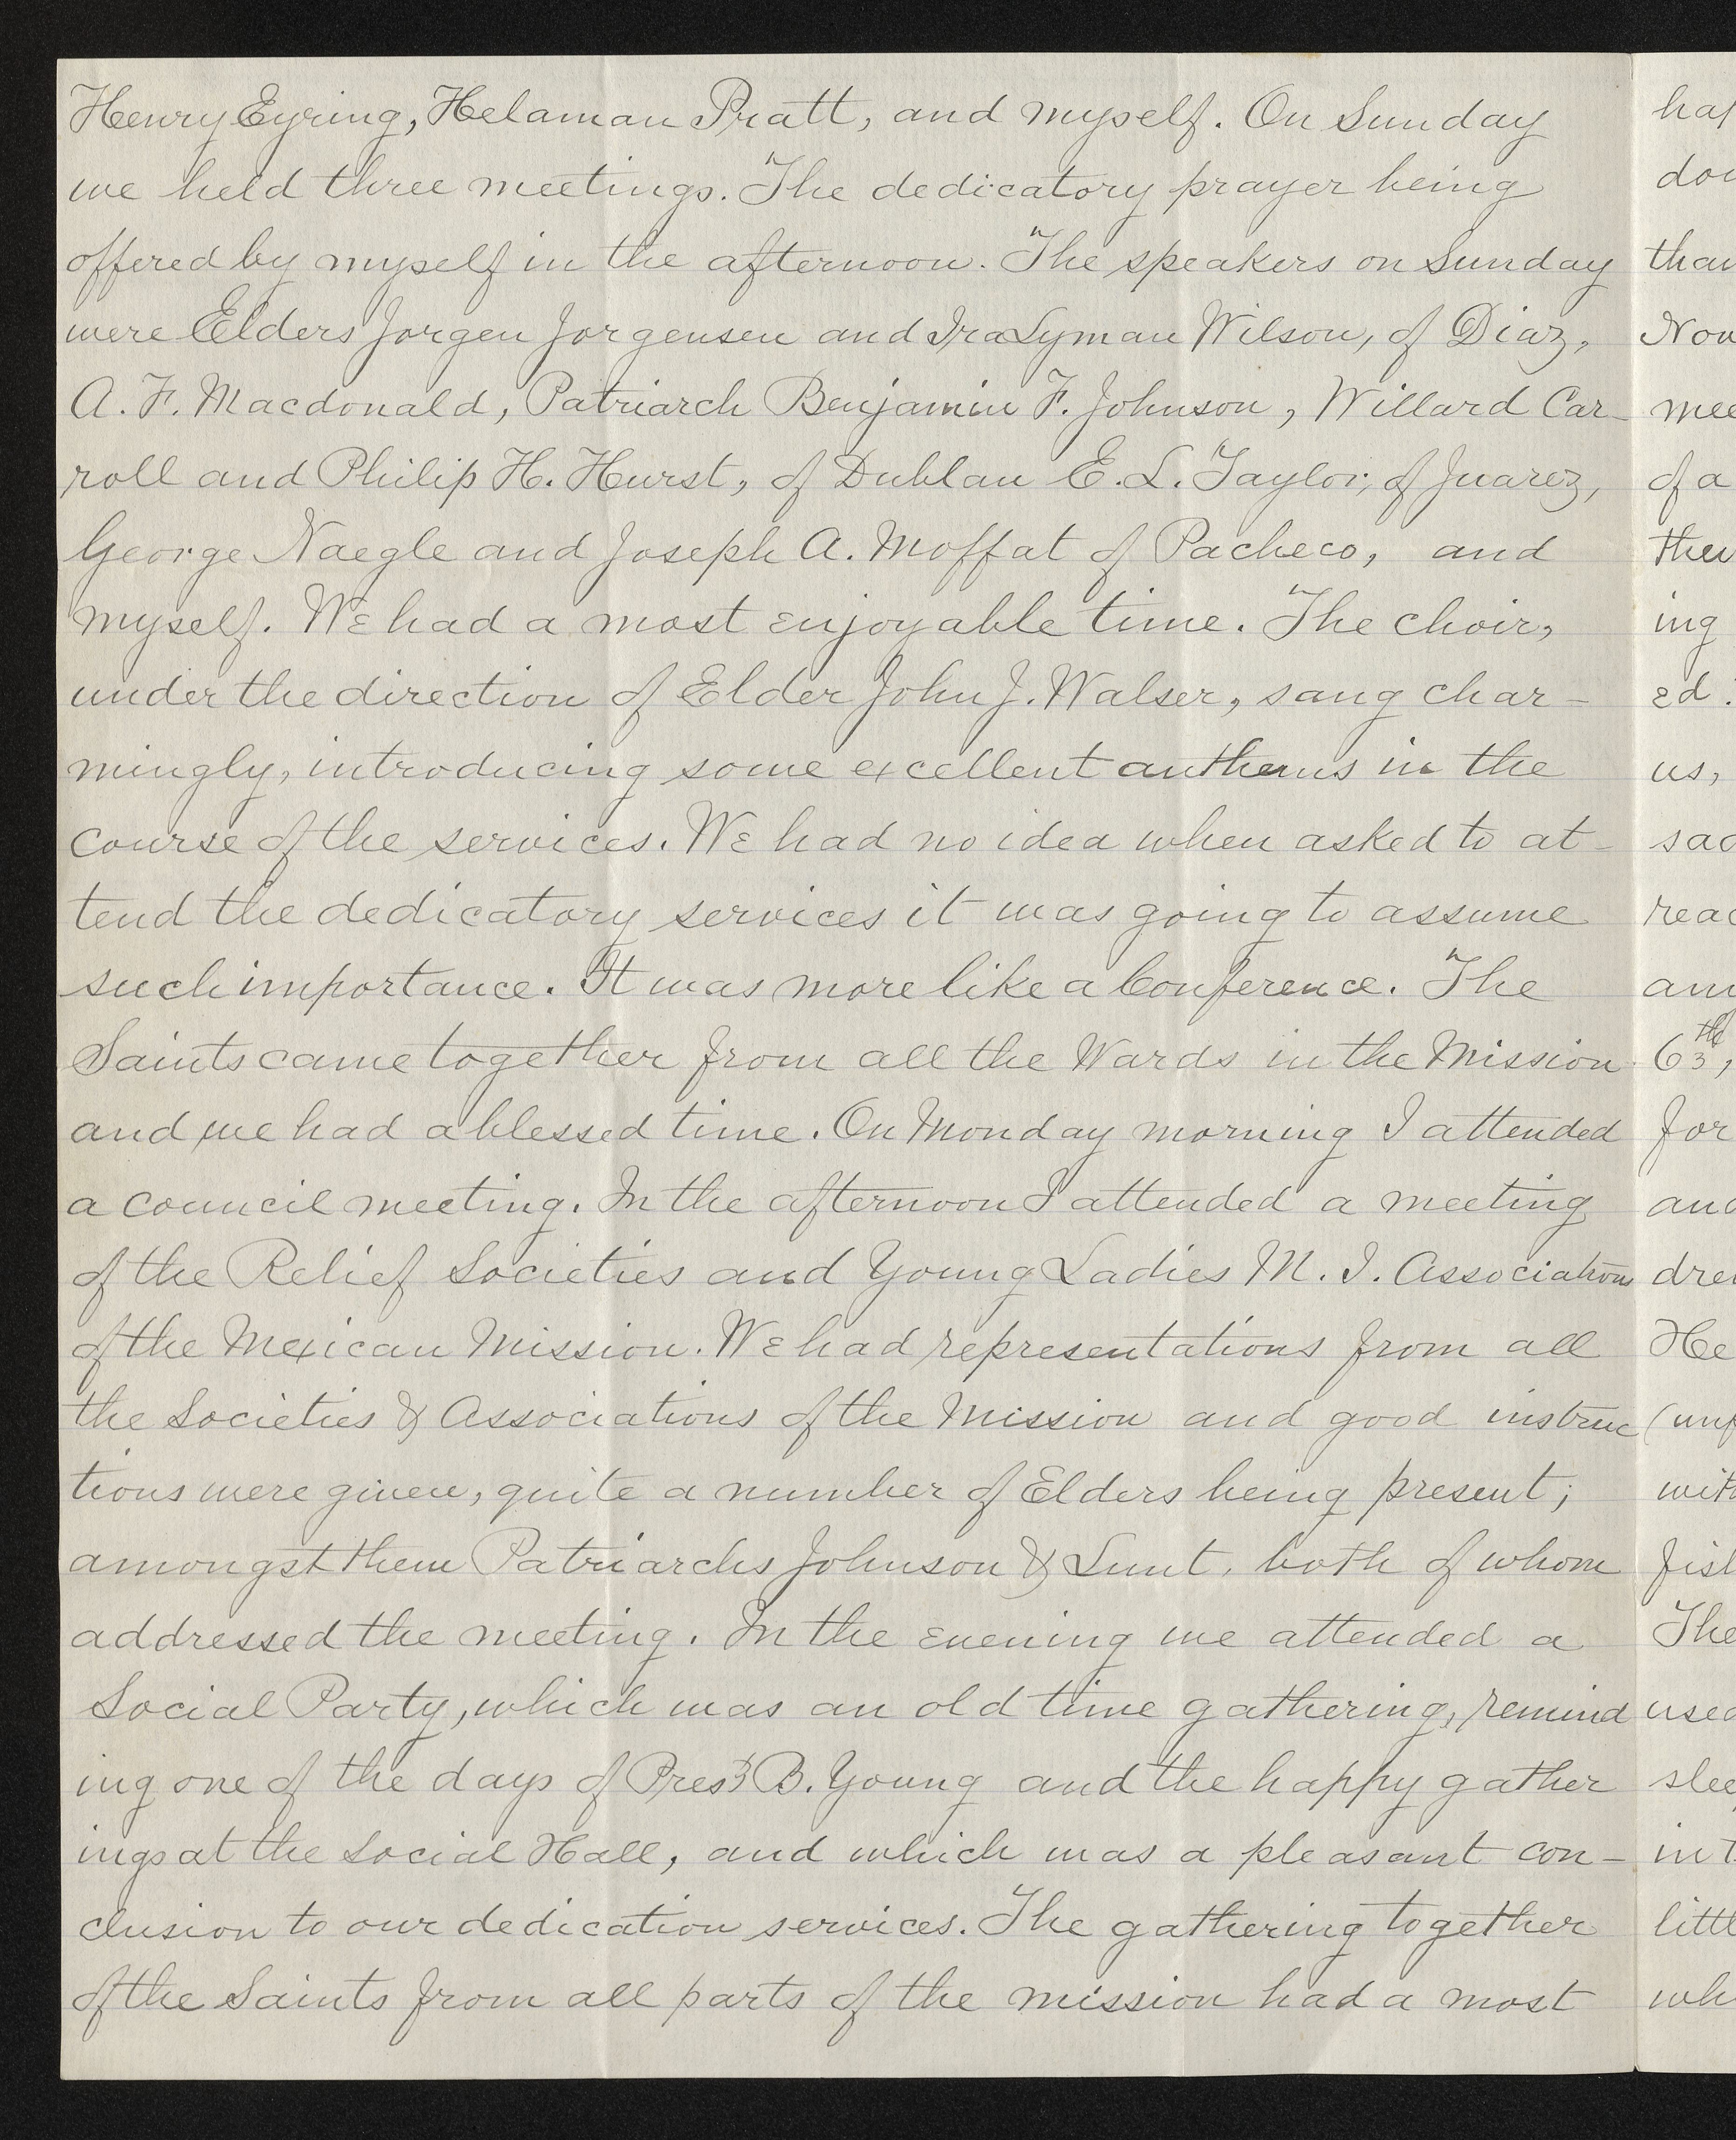 Henry Eyring, Helaman Pratt, and myself. On Sunday
we held three meetings. The dedicatory prayer being
offered by myself in the afternoon. The speakers on Sunday
were Elders Jorgen Jorgensen and Ira Lyman Wilson, of Diaz,
A. F. Macdonald, Patriarch Benjamin F. Johnson, Willard Car-
roll and Philip H. Hurst, of Dublan E. L. Taylor, of Juarez,
George Naegle and Joseph A. Moffat of Pacheco, and
myself. We had a most enjoyable time. The choir,
under the direction of Elder John J. Walser, sang char-
mingly, introducing some excellent anthems in the
course of the services. We had no idea when asked to at-
tend the dedicatory services it was going to assume
such importance. It was more like a Conference. The
Saints came together from all the Wards in the Mission
and we had a blessed time. On Monday morning I attended
a council meeting. In the afternoon I attended a meeting
of the Relief Societies and Young Ladies M. I. Associations
of the Mexican Mission. We had representations from all
the Societies & Associations of the Mission and good instruc
tions were given, quite a number of Elders being present;
amongst them Patriarchs Johnson & Lunt, both of whom
addressed the meeting. In the evening we attended a
Social Party, which was an old time gathering, remind
ing one of the days of Prest B. Young and the happy gather
ings at the Social Hall, and which was a pleasant con-
clusion to our dedication services. The gathering together
of the Saints from all parts of the mission had a most
hap
dou
than
Now
mee
of a
then
ing
ed.
us,
sac
reac
am
63th,
for
and
dre
He
(unf
with
fish
The
used
slee
in t
littl
wh